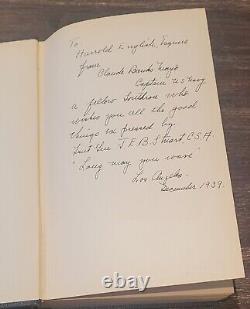 To
Harrold English, Esquire
from
Claude Banks Mayo
Captain U S Navy
a fellow Southron who
wishes you all the good
things expressed by
Lieut Gen J.E.B. Stuart C.S.A.
"Long may you wave"
Los Angeles
December 1939.